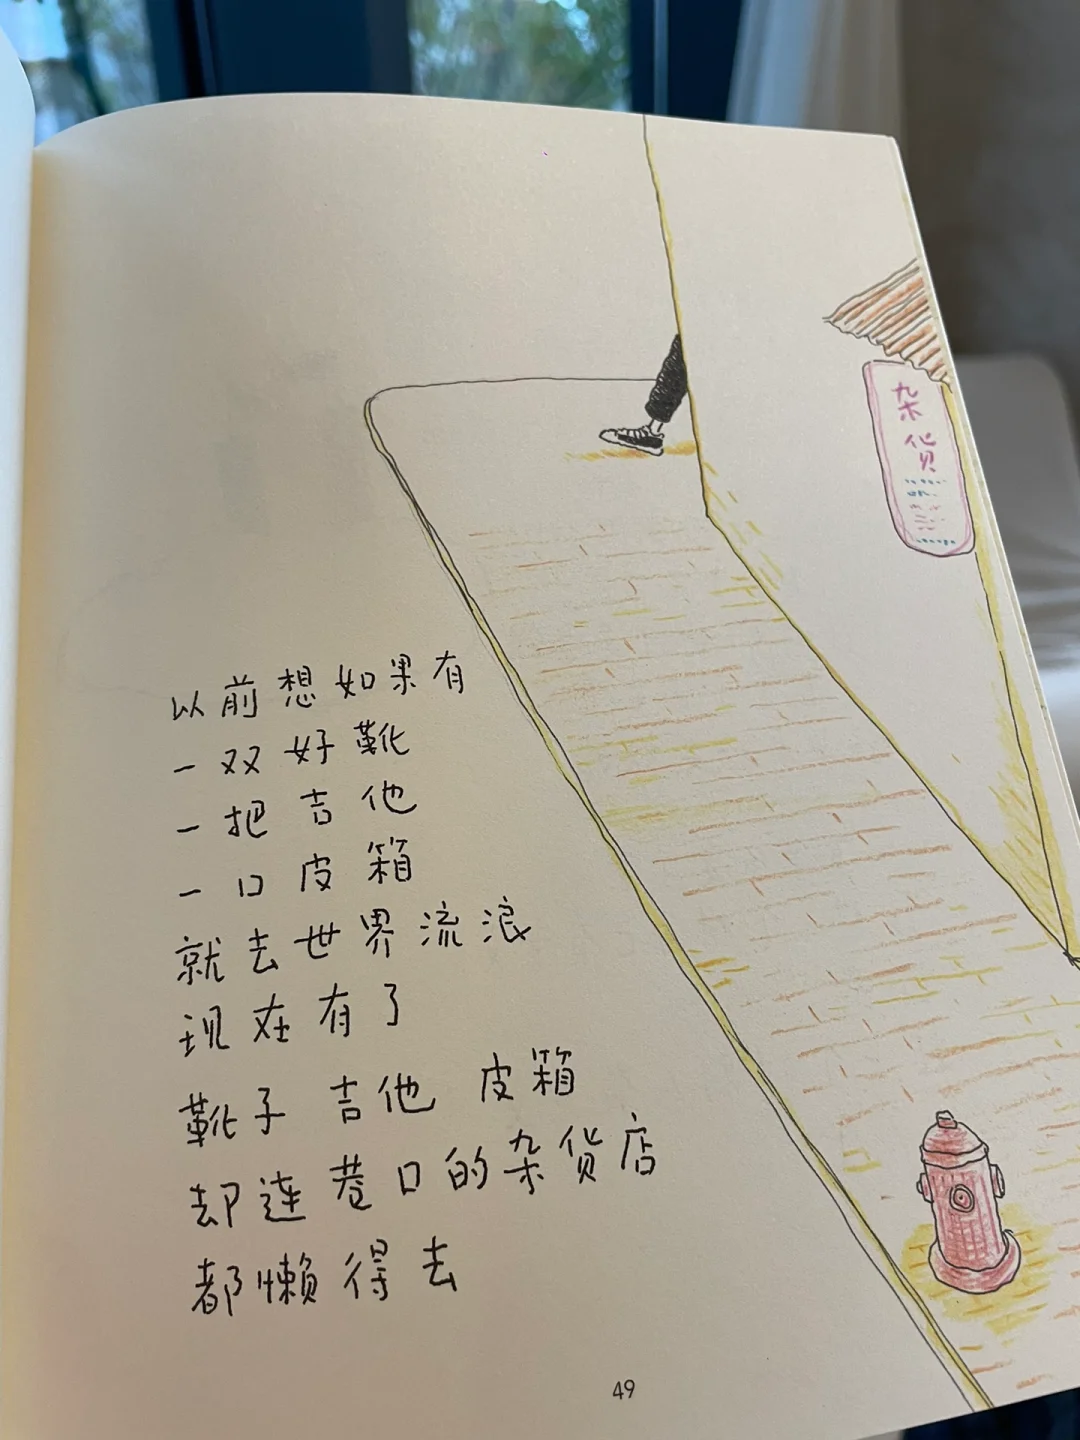 杂
货
以前想如果有
一双好靴
一把吉他
一口皮箱
就去世界流浪
现在有了
靴子 吉他 皮箱
却连巷口的杂货店
都懒得去
49